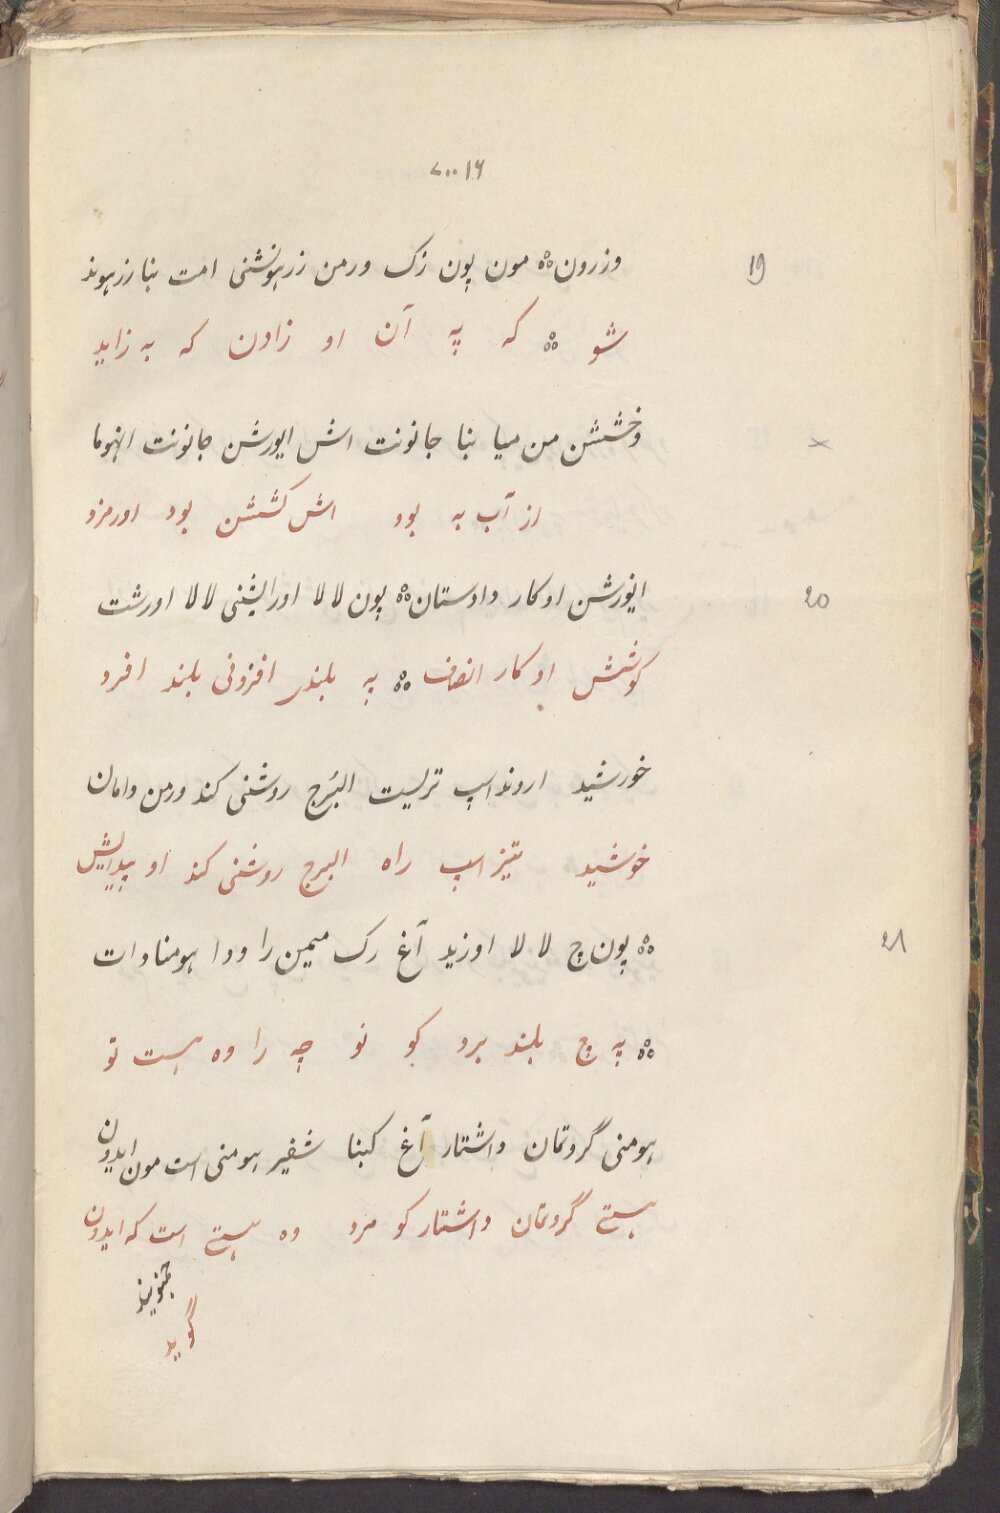 ۷۰۰۱۶
19 وزرون ஃ مون پون زک ورمن زرهونشنی امت بنا زرهوند
شو ஃ که په آن او زادن که به زاید
× وخشش من میا بنا جانونت اش ایورشن جانونت انهوما
از آب به بود اش کشش بود اورمزد
20 انورشن او کار دادستان ஃ پون لالا اورایشنی لالا اورشت
کوشش او کار انصاف ஃ په بلندر افزونی بلند افرو
خورشید اروند اسپ ترلیست البُرج روشنی کند ورمن دامان
خوشید تیز اسپ راه البرج روشنی کند او پیدایش
21 ஃ پون چ لا لا اوزید آغ رک میمن را ودا هومنا دات
ஃ په چ بلند برو کو نو چه را وه هست تو
هومنی گروتمان داشتار آغ کبنا شفیر هومنی است مون ایدون
هستے گروتمان داشتار کو مرد وه هستے است که ایدون
گوید